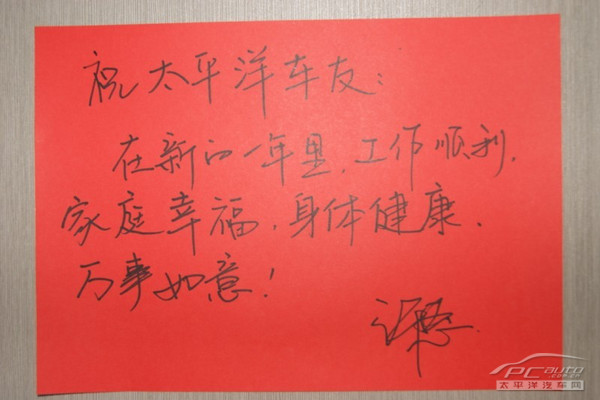 祝太平洋车友：
在新的一年里，工作顺利，
家庭幸福，身体健康，
万事如意！
PCauto
.com.cn
太平洋汽车网